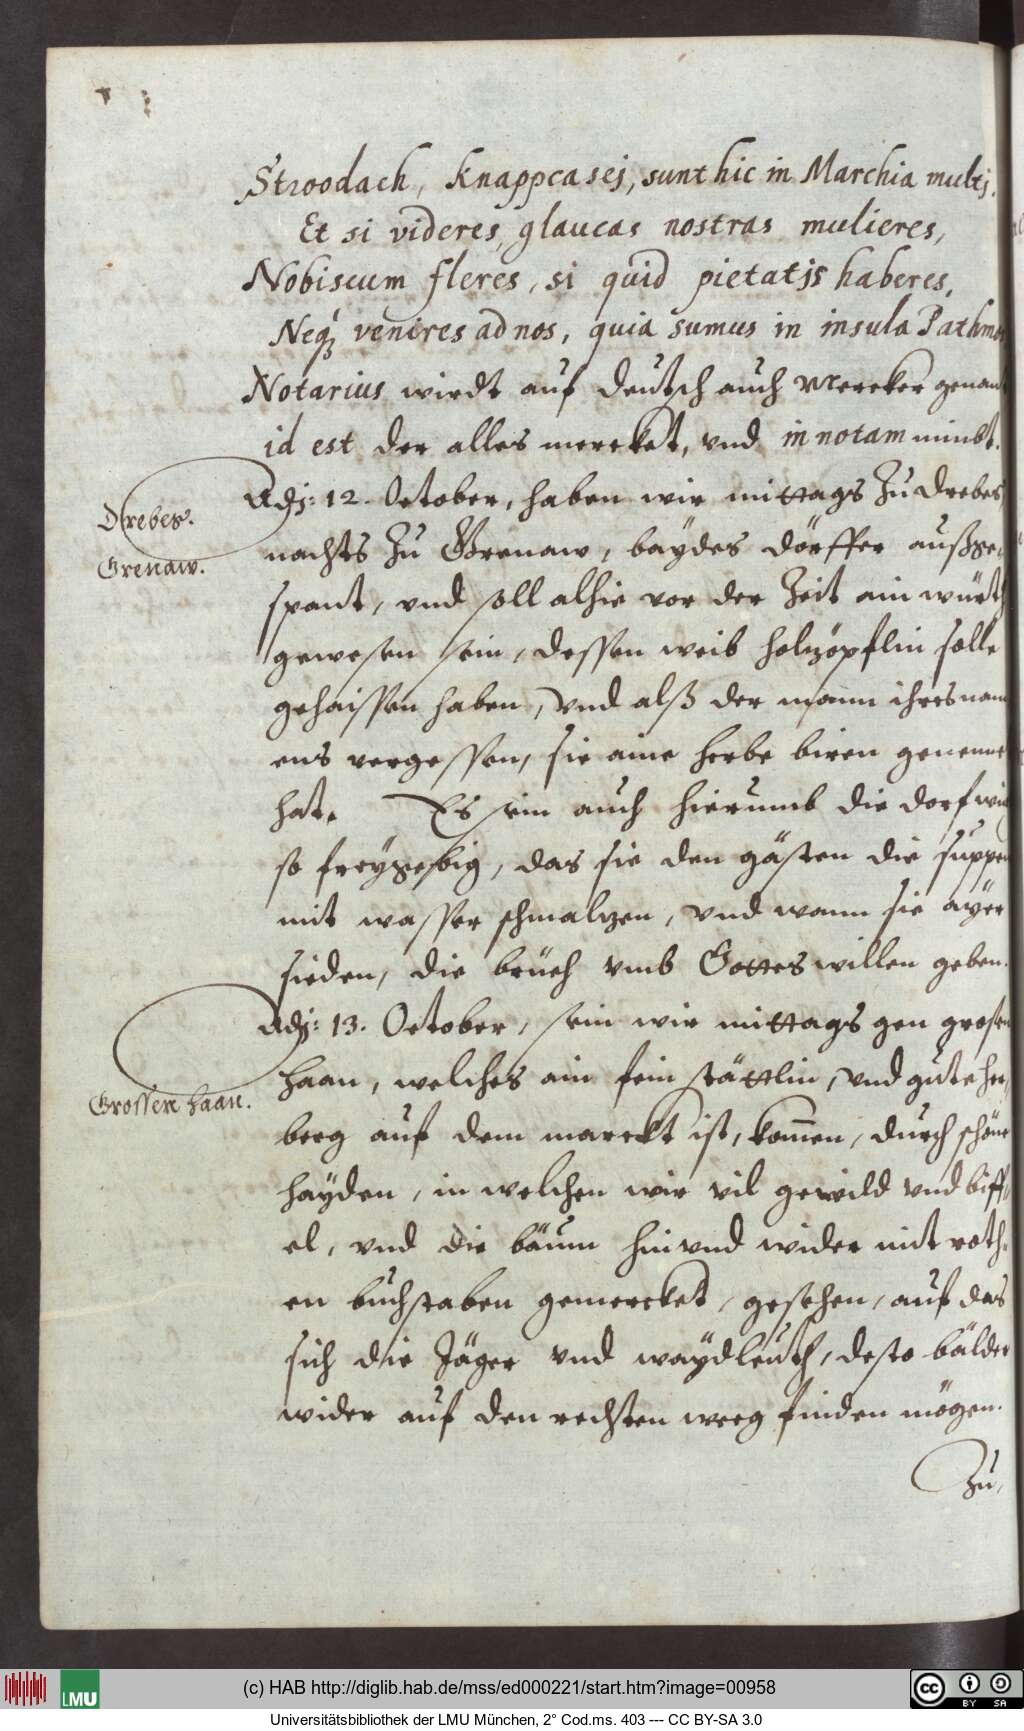 Stroodach, knappcasej, sunt hic in Marchia multj.
Et si videres, glaucas nostras mulieres,
Nobiscum fleres, si quid pietatis haberes,
Neq; venires ad nos, quia sumus in insula Pathmos
Notarius wirdt auf deutsch auch Mercker genant
id est der alles mercket, vnd in notam nimbt.
Adj: 12. October, haben wir mittags Zu Drebes,
Drebes.
nachts Zu Grenaw, baydes dörffer außge,,
Grenaw.
spant, vnd soll alhie vor der Zeit ain würth
gewesen sein, dessen weib holtzöpflin solle
gehaissen haben, vnd alß der mann ihres nam
ens vergessen, sie aine herbe biren genennet
hat. Es sein auch hierumb die dorfwir
so freygebig, das sie den gästen die suppen
mit wasser schmaltzen, vnd wann sie ayer
sieden, die brüeh vmb Gottes willen geben.
Adj: 13. October, sein wir mittags gen grosen
haan, welches ain fein stättlin, vnd gute her,,
Grossen haan.
berg auf dem marckt ist, kommen, durch schöne
hayden, in welchen wir vil gewild vnd biff,,
el, vnd die bäum hin vnd wider mit roth,,
en buchstaben gemercket, gesehen, auf das
sich die Jäger vnd waydleuth, desto bälder
wider auf den rechten weeg finden mögen.
Zu,
(c) HAB http://diglib.hab.de/mss/ed000221/start.htm?image=00958
LMU
BY SA
Universitätsbibliothek der LMU München, 2° Cod.ms. 403 --- CC BY-SA 3.0